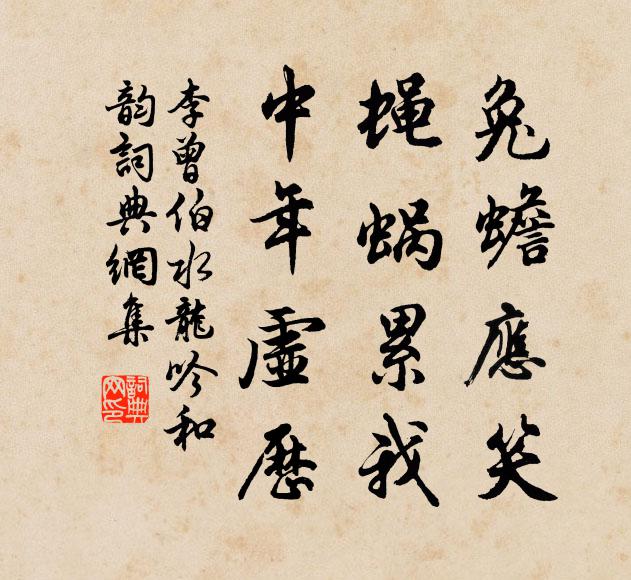 兔蟾應笑
蝇蜗累我
中年虛歷
李曾伯水龍吟和
韵詞典網集
詞典网印